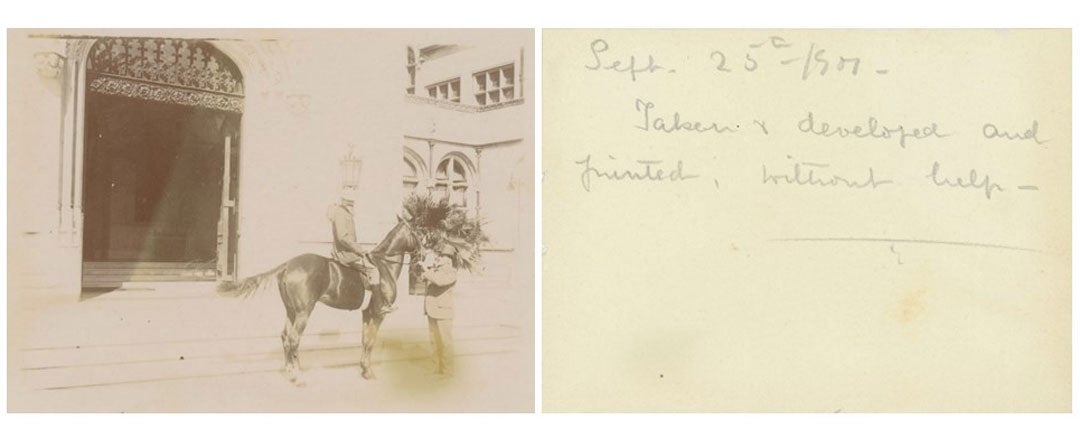 Sept. 25th 1901 -
Taken & developed and
printed, without help -